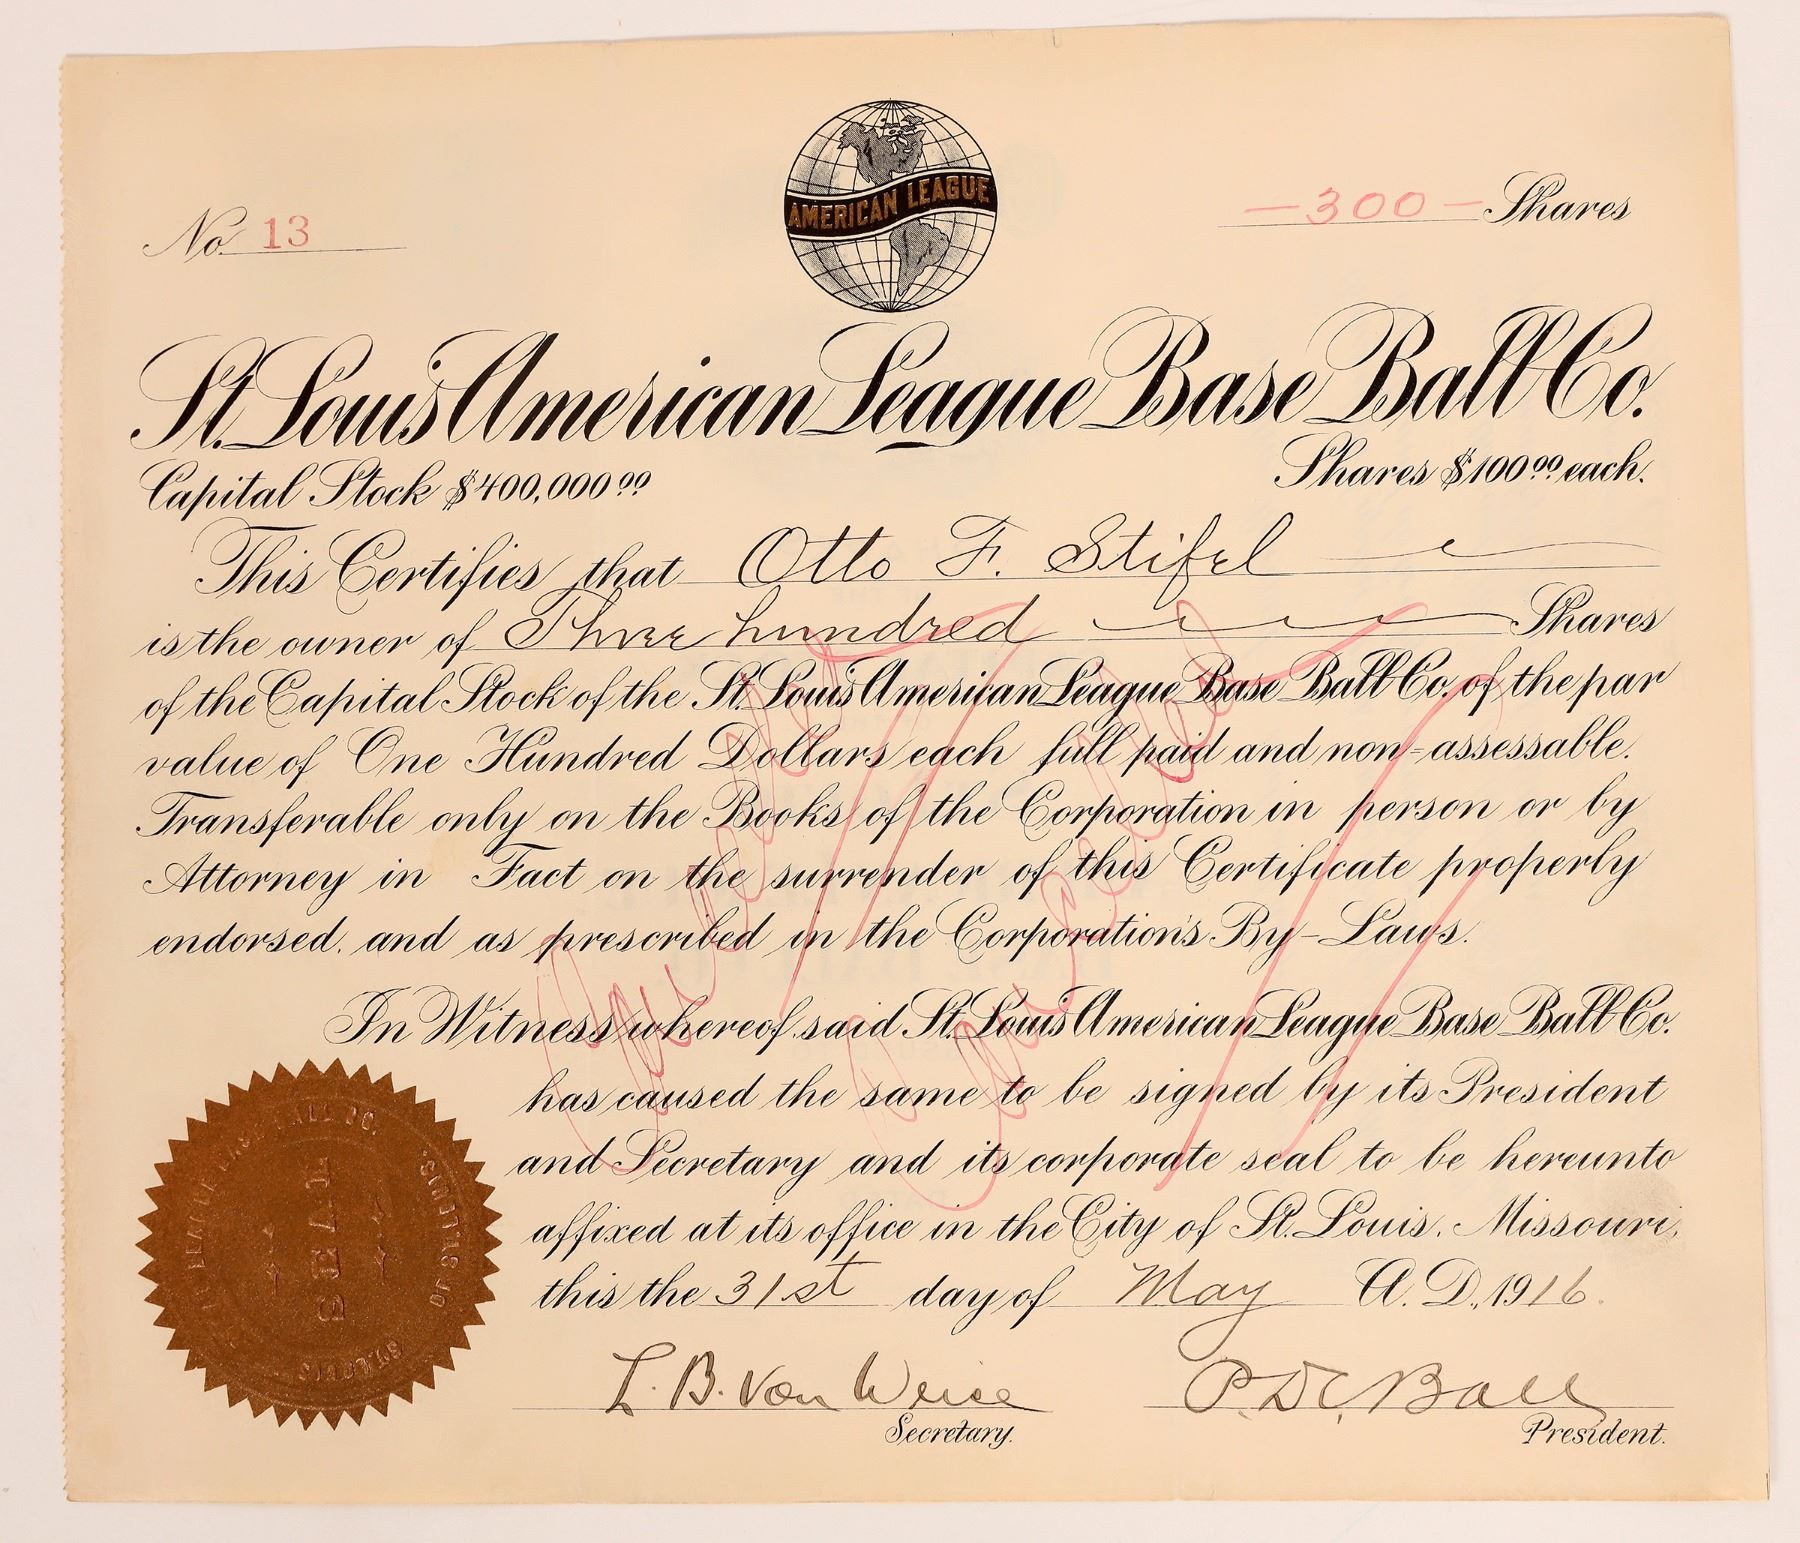 AMERICAN LEAGUE
No. 13
—300— Shares
St. Louis American League Base Ball Co.
Capital Stock $400,000.00
Shares $100.00 each.
This Certifies that Otto F. Stifel
is the owner of Three hundred Shares
of the Capital Stock of the St. Louis American League Base Ball Co. of the par
value of One Hundred Dollars each full paid and non-assessable.
Transferable only on the Books of the Corporation in person or by
Attorney in Fact on the surrender of this Certificate properly
endorsed, and as prescribed in the Corporation's By-Laws.
In Witness whereof said St. Louis American League Base Ball Co.
has caused the same to be signed by its President
and Secretary and its corporate seal to be hereunto
affixed at its office in the City of St. Louis, Missouri,
this the 31st day of May A.D. 1916.
L. B. Von Weise
Secretary.
P. De C. Ball
President.
BALL CO.
OF ST. LOUIS.
SEAL
ST. LOUIS